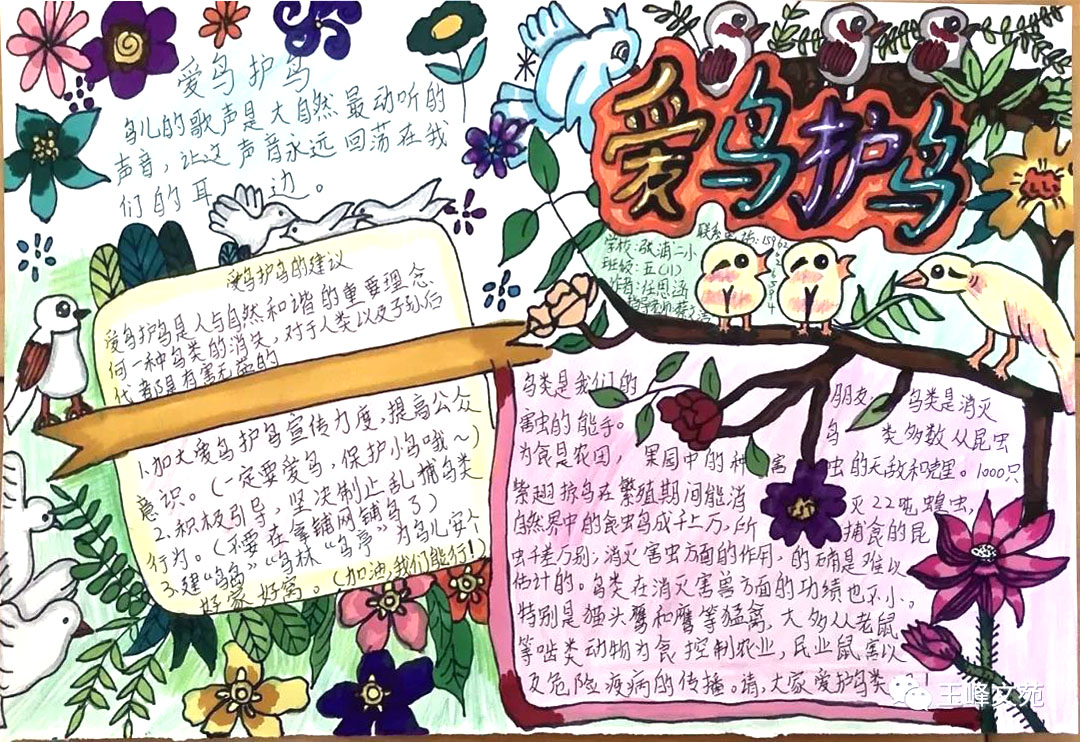 爱鸟护鸟
鸟儿的歌声是大自然最动听的
声音，让这声音永远回荡在我
们的耳边。
爱鸟护鸟
学校：张浦二小
班级：五(11)
作者：任思涵
爱鸟护鸟的建议
爱鸟护鸟是人与自然和谐的重要理念
何一种鸟类的消失，对于人类以及子孙后
代都是有害无益的
1.加大爱鸟护鸟宣传力度，提高公众
意识。（一定要爱鸟，保护小鸟哦～）
2.积极引导，坚决制止乱捕鸟类
行为。（不要在拿铺网铺鸟了）
3.建“鸟岛”“鸟林”“鸟亭”为鸟儿安个
好家好窝。（加油，我们能行！）
鸟类是我们的朋友，鸟类是消灭
害虫的能手。鸟类多数从昆虫
为食是农田，果园中的种害虫的天敌和克星。1000只
紫翅掠鸟在繁殖期间能消灭22吨蝗虫，
自然界中的食虫鸟成千上万，所捕食的昆
虫千差万别；消灭害虫方面的作用，的确是难以
估计的。鸟类在消灭害兽方面的功绩也不小。
特别是猫头鹰和鹰等猛禽，大多从老鼠
等啮类动物为食控制农业，民业鼠害以
及危险疫病的传播。请，大家爱护鸟类！
王峰文苑